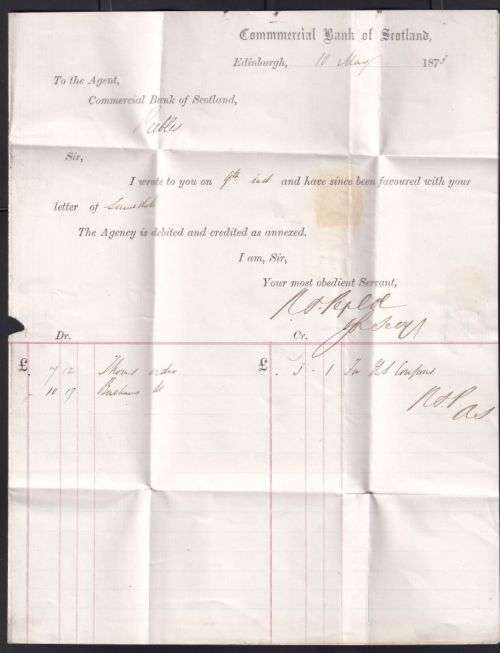 Commmercial Bank of Scotland,
Edinburgh, 10 May 1873
To the Agent,
Commercial Bank of Scotland,
Peebles
Sir,
I wrote to you on 9th and have since been favoured with your
letter of same date
The Agency is debited and credited as annexed.
I am, Sir,
Your most obedient Servant,
Dr. Cr.
£ 7 12 Thoms order £ 3 - 1 For US Coupons
10 17 do